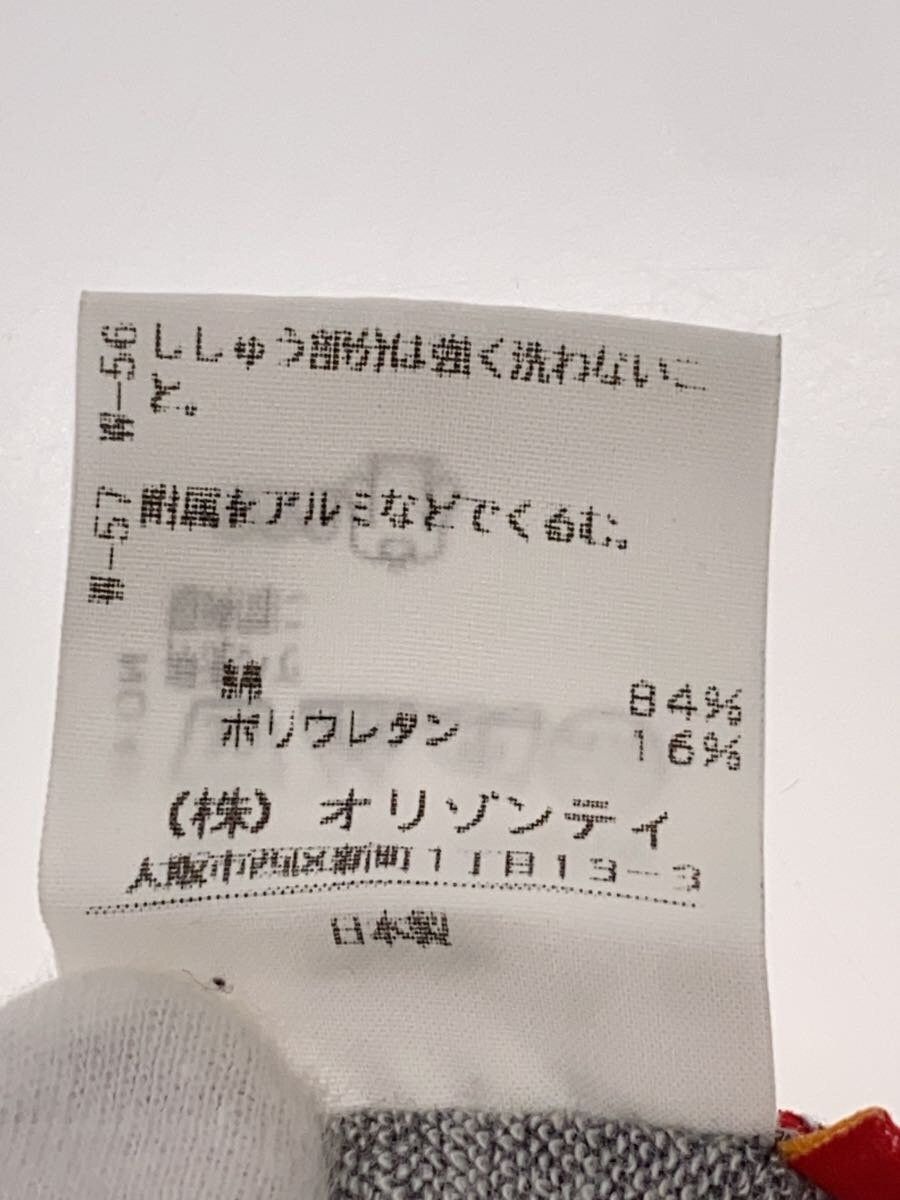 ししゅう部分は強く洗わないこ
と。
附属をアルミなどでくるむ。
綿 84%
ポリウレタン 16%
(株) オリゾンティ
大阪市西区新町1丁目13-3
日本製